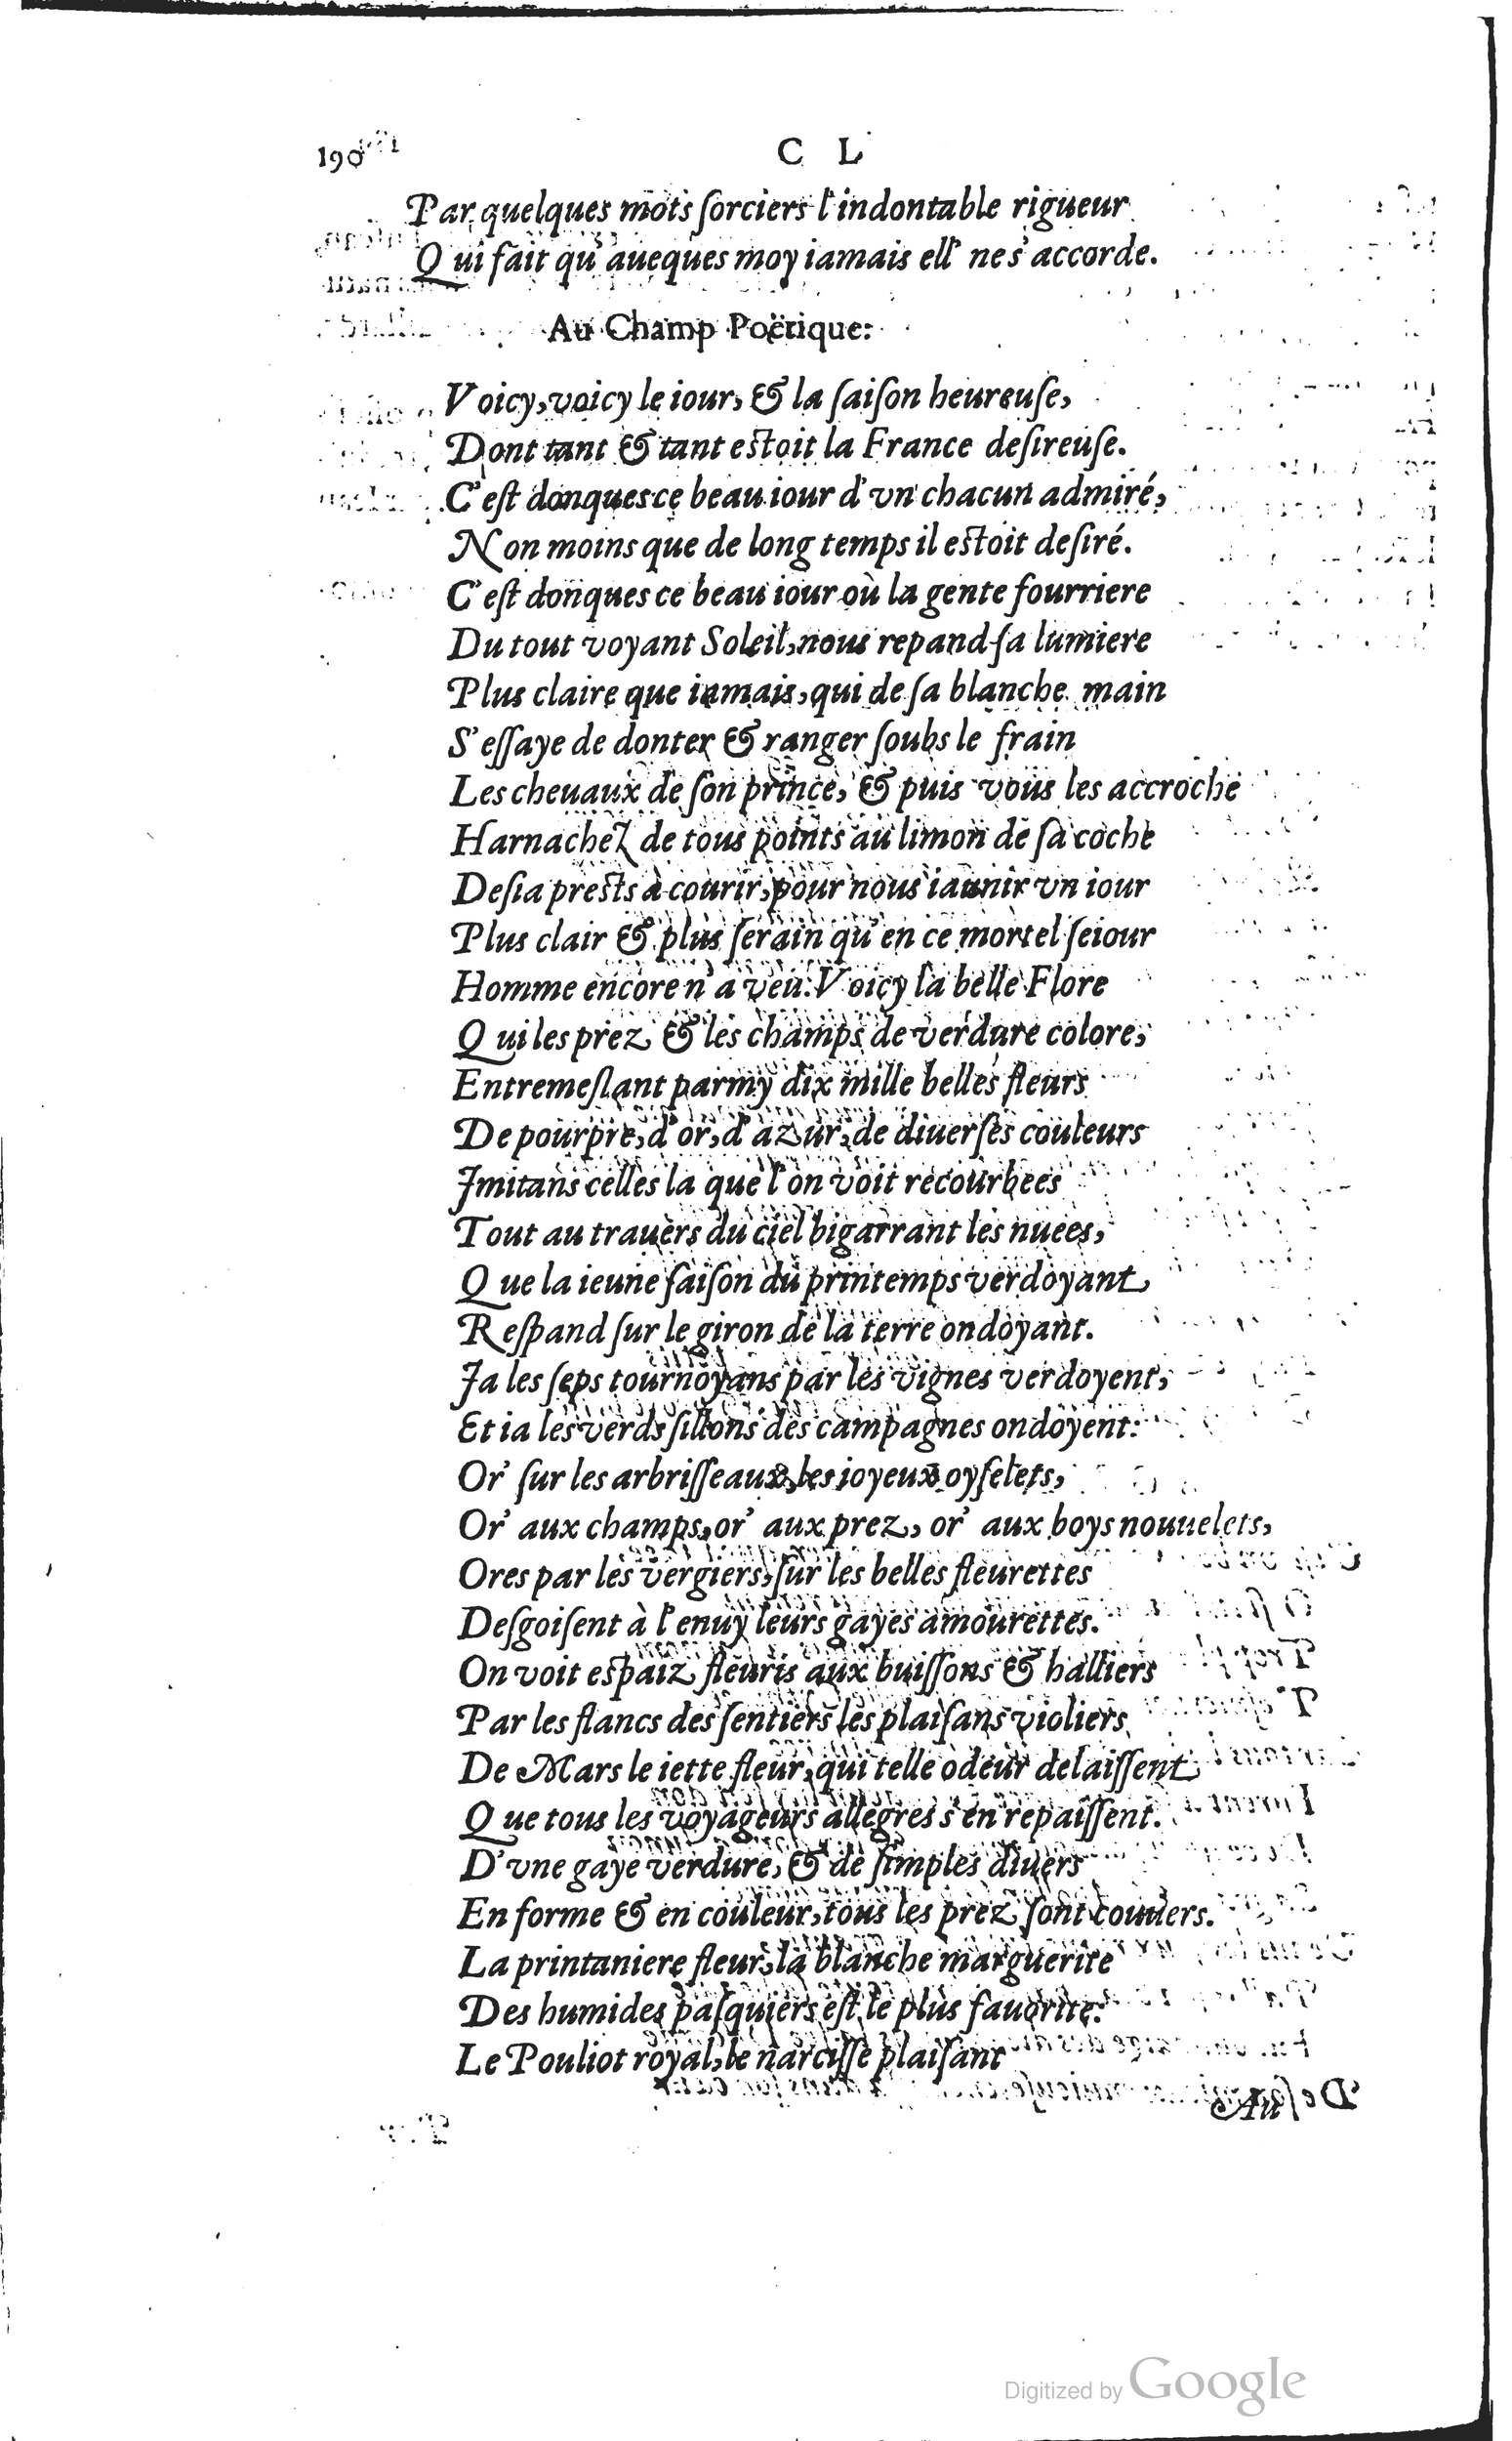 190
C L
Par quelques mots ſorciers l'indontable rigueur
Qui fait qu'aueques moy iamais ell' ne s'accorde.
Au Champ Poëtique:
Voicy, voicy le iour, & la ſaiſon heureuſe,
Dont tant & tant eſtoit la France deſireuſe.
C'eſt donques ce beau iour d'vn chacun admiré,
Non moins que de long temps il eſtoit deſiré.
C'eſt donques ce beau iour où la gente fourriere
Du tout voyant Soleil, nous repand ſa lumiere
Plus claire que iamais, qui de ſa blanche main
S'eſſaye de donter & ranger ſoubs le frain
Les cheuaux de ſon prince, & puis vous les accroche
Harnachez de tous points au limon de ſa coche
Deſia preſts à courir, pour nous iaunir vn iour
Plus clair & plus ſerain qu'en ce mortel ſeiour
Homme encore n'a veu. Voicy la belle Flore
Qui les prez & les champs de verdure colore,
Entremeſlant parmy dix mille belles fleurs
De pourpre, d'or, d'azur, de diuerſes couleurs
Imitans celles la que l'on voit recourbees
Tout au trauers du ciel bigarrant les nuees,
Que la ieune ſaiſon du printemps verdoyant
Reſpand ſur le giron de la terre ondoyant.
Ja les ſeps tournoyans par les vignes verdoyent,
Et ia les verds ſillons des campagnes ondoyent:
Or' ſur les arbriſſeaux, les ioyeux oyſelets,
Or' aux champs, or' aux prez, or' aux boys nouuelets,
Ores par les vergiers, ſur les belles fleurettes
Deſgoiſent à l'enuy leurs gayes amourettes.
On voit eſpaiz fleuris aux buiſſons & halliers
Par les flancs des ſentiers les plaiſans violiers
De Mars le iette fleur, qui telle odeur delaiſſent
Que tous les voyageurs allegres s'en repaiſſent.
D'vne gaye verdure, & de ſimples diuers
En forme & en couleur, tous les prez ſont couuers.
La printaniere fleur, la blanche marguerite
Des humides paſquiers eſt le plus fauorite:
Le Pouliot royal, le narciſſe plaiſant
Au
Digitized by Google